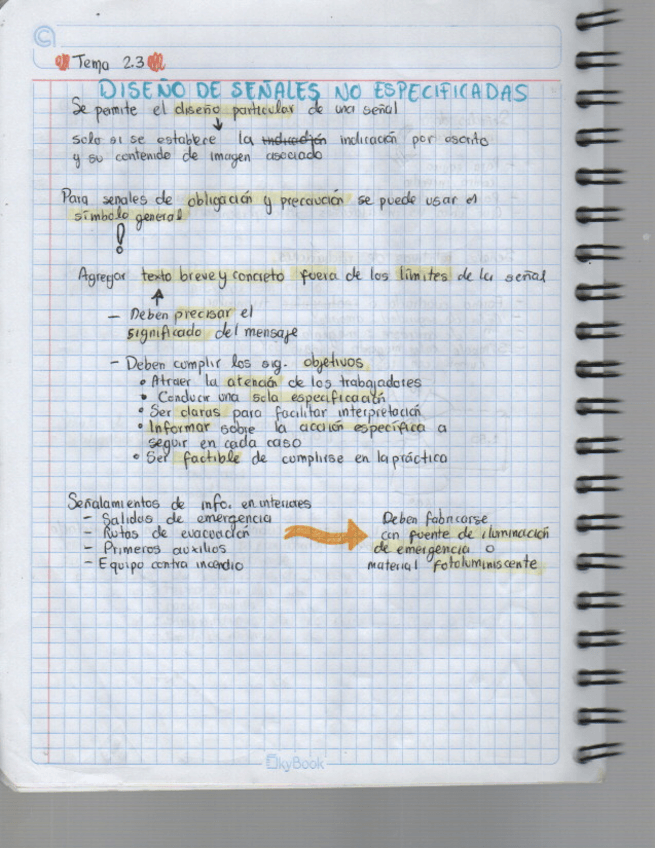 Tema 2.3
DISEÑO DE SEÑALES NO ESPECIFICADAS
Se permite el diseño particular de una señal
↓
solo si se establece la indicación indicación por escrito
y su contenido de imagen asociado
Para señales de obligación y precaución se puede usar el
símbolo general
!
Agregar texto breve y concreto fuera de los límites de la señal
↑
- Deben precisar el
significado del mensaje
- Deben cumplir los sig. objetivos
• Atraer la atención de los trabajadores
• Conducir una sola especificación
• Ser claros para facilitar interpretación
• Informar sobre la acción específica a
seguir en cada caso
• Ser factible de cumplirse en la práctica
Señalamientos de info. en interiores
- Salidas de emergencia
- Rutas de evacuación
- Primeros auxilios
- Equipo contra incendio
Deben fabricarse
con fuente de iluminación
de emergencia o
material fotoluminiscente
SkyBook